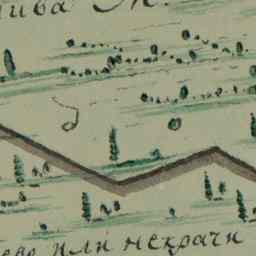 лива М.
ево или некрачи